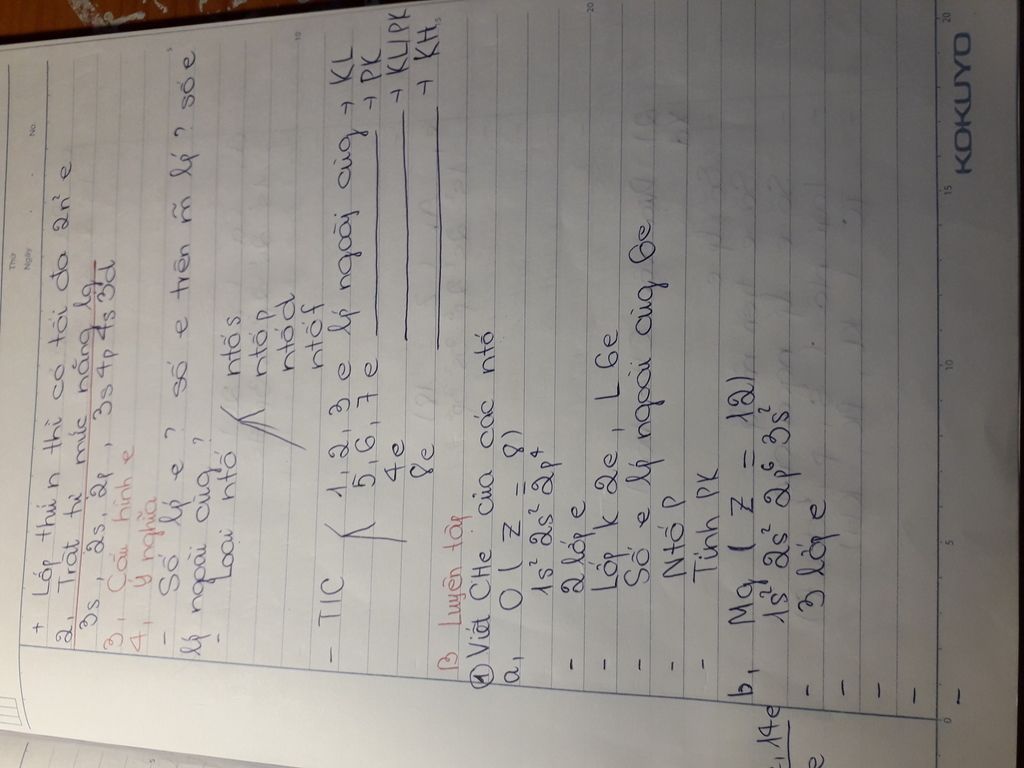 Thứ
Ngày
No.
+ Lớp thứ n thì có tối đa 2n² e
2, Trật tự mức năng lg
3s, 2s, 2p, 3s 4p 4s 3d
3, Cấu hình e
4, Ý nghĩa
- Số lp e? số e trên m̃ lp? số e
lp ngoài cùg?
- Loại ntố
ntố s
ntố p
ntố d
ntố f
- TIC 1, 2, 3 e lp ngoài cùg → KL
5, 6, 7 e → PK
4e → KL/PK
8e → KH
B Luyện tập
① Viết CHe của các ntố
a, O ( Z = 8)
1s² 2s² 2p⁴
- 2 lớp e
- Lớp K 2e, L 6e
- Số e lp ngoài cùg 6e
- Ntố p
- Tính PK
b, Mg ( Z = 12)
1s² 2s² 2p⁶ 3s²
- 3 lớp e
-
-
-
-
14e
e
5
10
15
20
KOKUYO